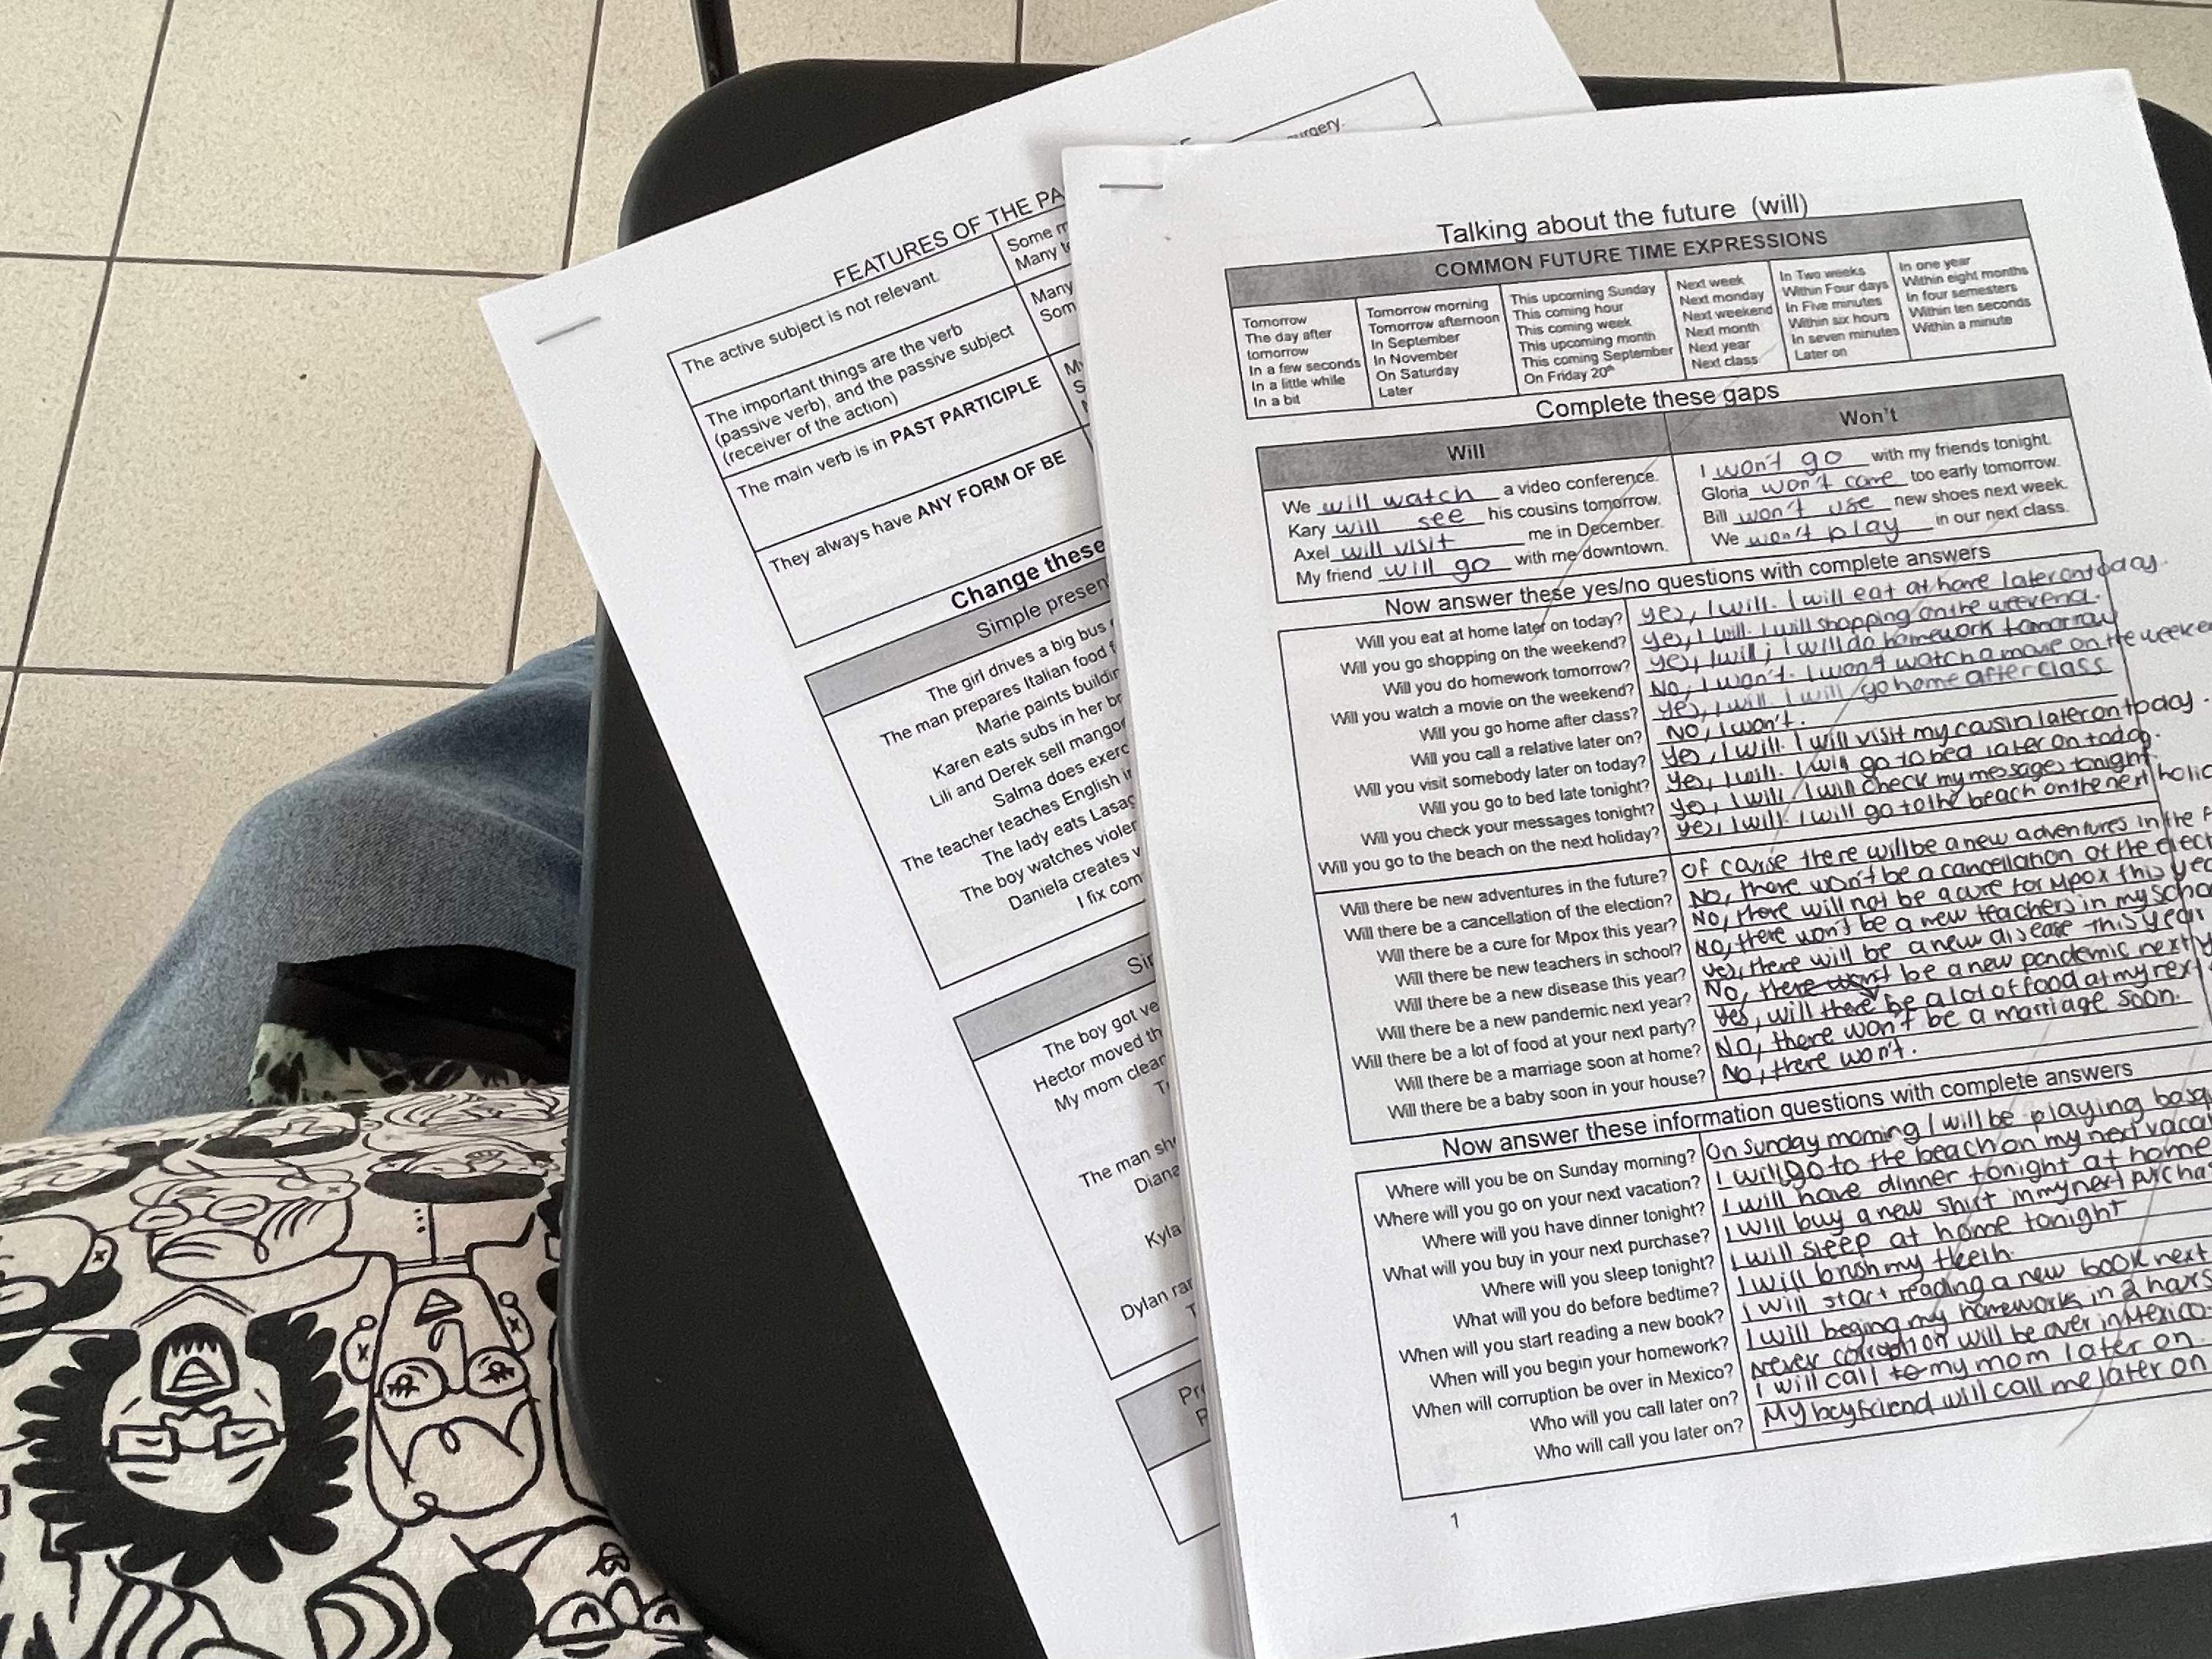 urgery.
FEATURES OF THE PA
The active subject is not relevant.
Some m
Many te
The important things are the verb
(passive verb), and the passive subject
(receiver of the action)
Many
Som
The main verb is in PAST PARTICIPLE
My
They always have ANY FORM OF BE
Change these
Simple presen
The girl drives a big bus
The man prepares Italian food f
Marie paints buildin
Karen eats subs in her br
Lili and Derek sell mango
Salma does exerc
The teacher teaches English i
The lady eats Lasag
The boy watches violen
Daniela creates v
I fix com
Si
The boy got ve
Hector moved th
My mom clear
T
The man sh
Diana
Kyla
Dylan ran
T
Pr
P
Talking about the future (will)
COMMON FUTURE TIME EXPRESSIONS
Tomorrow
The day after
tomorrow
In a few seconds
In a little while
In a bit
Tomorrow morning
Tomorrow afternoon
In September
In November
On Saturday
Later
This upcoming Sunday
This coming hour
This coming week
This upcoming month
This coming September
On Friday 20th
Next week
Next monday
Next weekend
Next month
Next year
Next class
In Two weeks
Within Four days
In Five minutes
Within six hours
In seven minutes
Later on
In one year
Within eight months
In four semesters
Within ten seconds
Within a minute
Complete these gaps
Will
Won't
We will watch a video conference.
Kary will see his cousins tomorrow.
Axel will visit me in December.
My friend will go with me downtown.
I won't go with my friends tonight.
Gloria won't come too early tomorrow.
Bill won't use new shoes next week.
We won't play in our next class.
Now answer these yes/no questions with complete answers
Will you eat at home later on today? yes, I will. I will eat at home later on today.
Will you go shopping on the weekend? yes, I will. I will shopping on the weekend.
Will you do homework tomorrow? yes, I will, I will do homework tomorrow
Will you watch a movie on the weekend? No, I won't. I won't watch a movie on the weeken
Will you go home after class? yes, I will. I will go home after class
Will you call a relative later on? No, I won't.
Will you visit somebody later on today? yes, I will. I will visit my cousin later on today.
Will you go to bed late tonight? yes, I will. I will go to bed later on today.
Will you check your messages tonight? yes, I will. I will check my messages tonight.
Will you go to the beach on the next holiday? yes, I will. I will go to the beach on the next holid
Will there be new adventures in the future? of course there will be a new adventures in the f
Will there be a cancellation of the election? No, there won't be a cancellation of the elect
Will there be a cure for Mpox this year? No, there will not be a cure for Mpox this yea
Will there be new teachers in school? No, there won't be a new teachers in my scho
Will there be a new disease this year? yes, there will be a new disease this year
Will there be a new pandemic next year? No, there won't be a new pandemic next y
Will there be a lot of food at your next party? yes, will there be a lot of food at my next
Will there be a marriage soon at home? No, there won't be a marriage soon.
Will there be a baby soon in your house? No, there won't.
Now answer these information questions with complete answers
Where will you be on Sunday morning? On sunday morning I will be playing basq
Where will you go on your next vacation? I will go to the beach on my next vacat
Where will you have dinner tonight? I will have dinner tonight at home
What will you buy in your next purchase? I will buy a new shirt in my next purcha
Where will you sleep tonight? I will sleep at home tonight
What will you do before bedtime? I will brush my theeth.
When will you start reading a new book? I will start reading a new book next
When will you begin your homework? I will beging my homework in 2 hours
When will corruption be over in Mexico? Never corruption will be over in Mexico.
Who will you call later on? I will call to my mom later on.
Who will call you later on? My boyfriend will call me later on
1